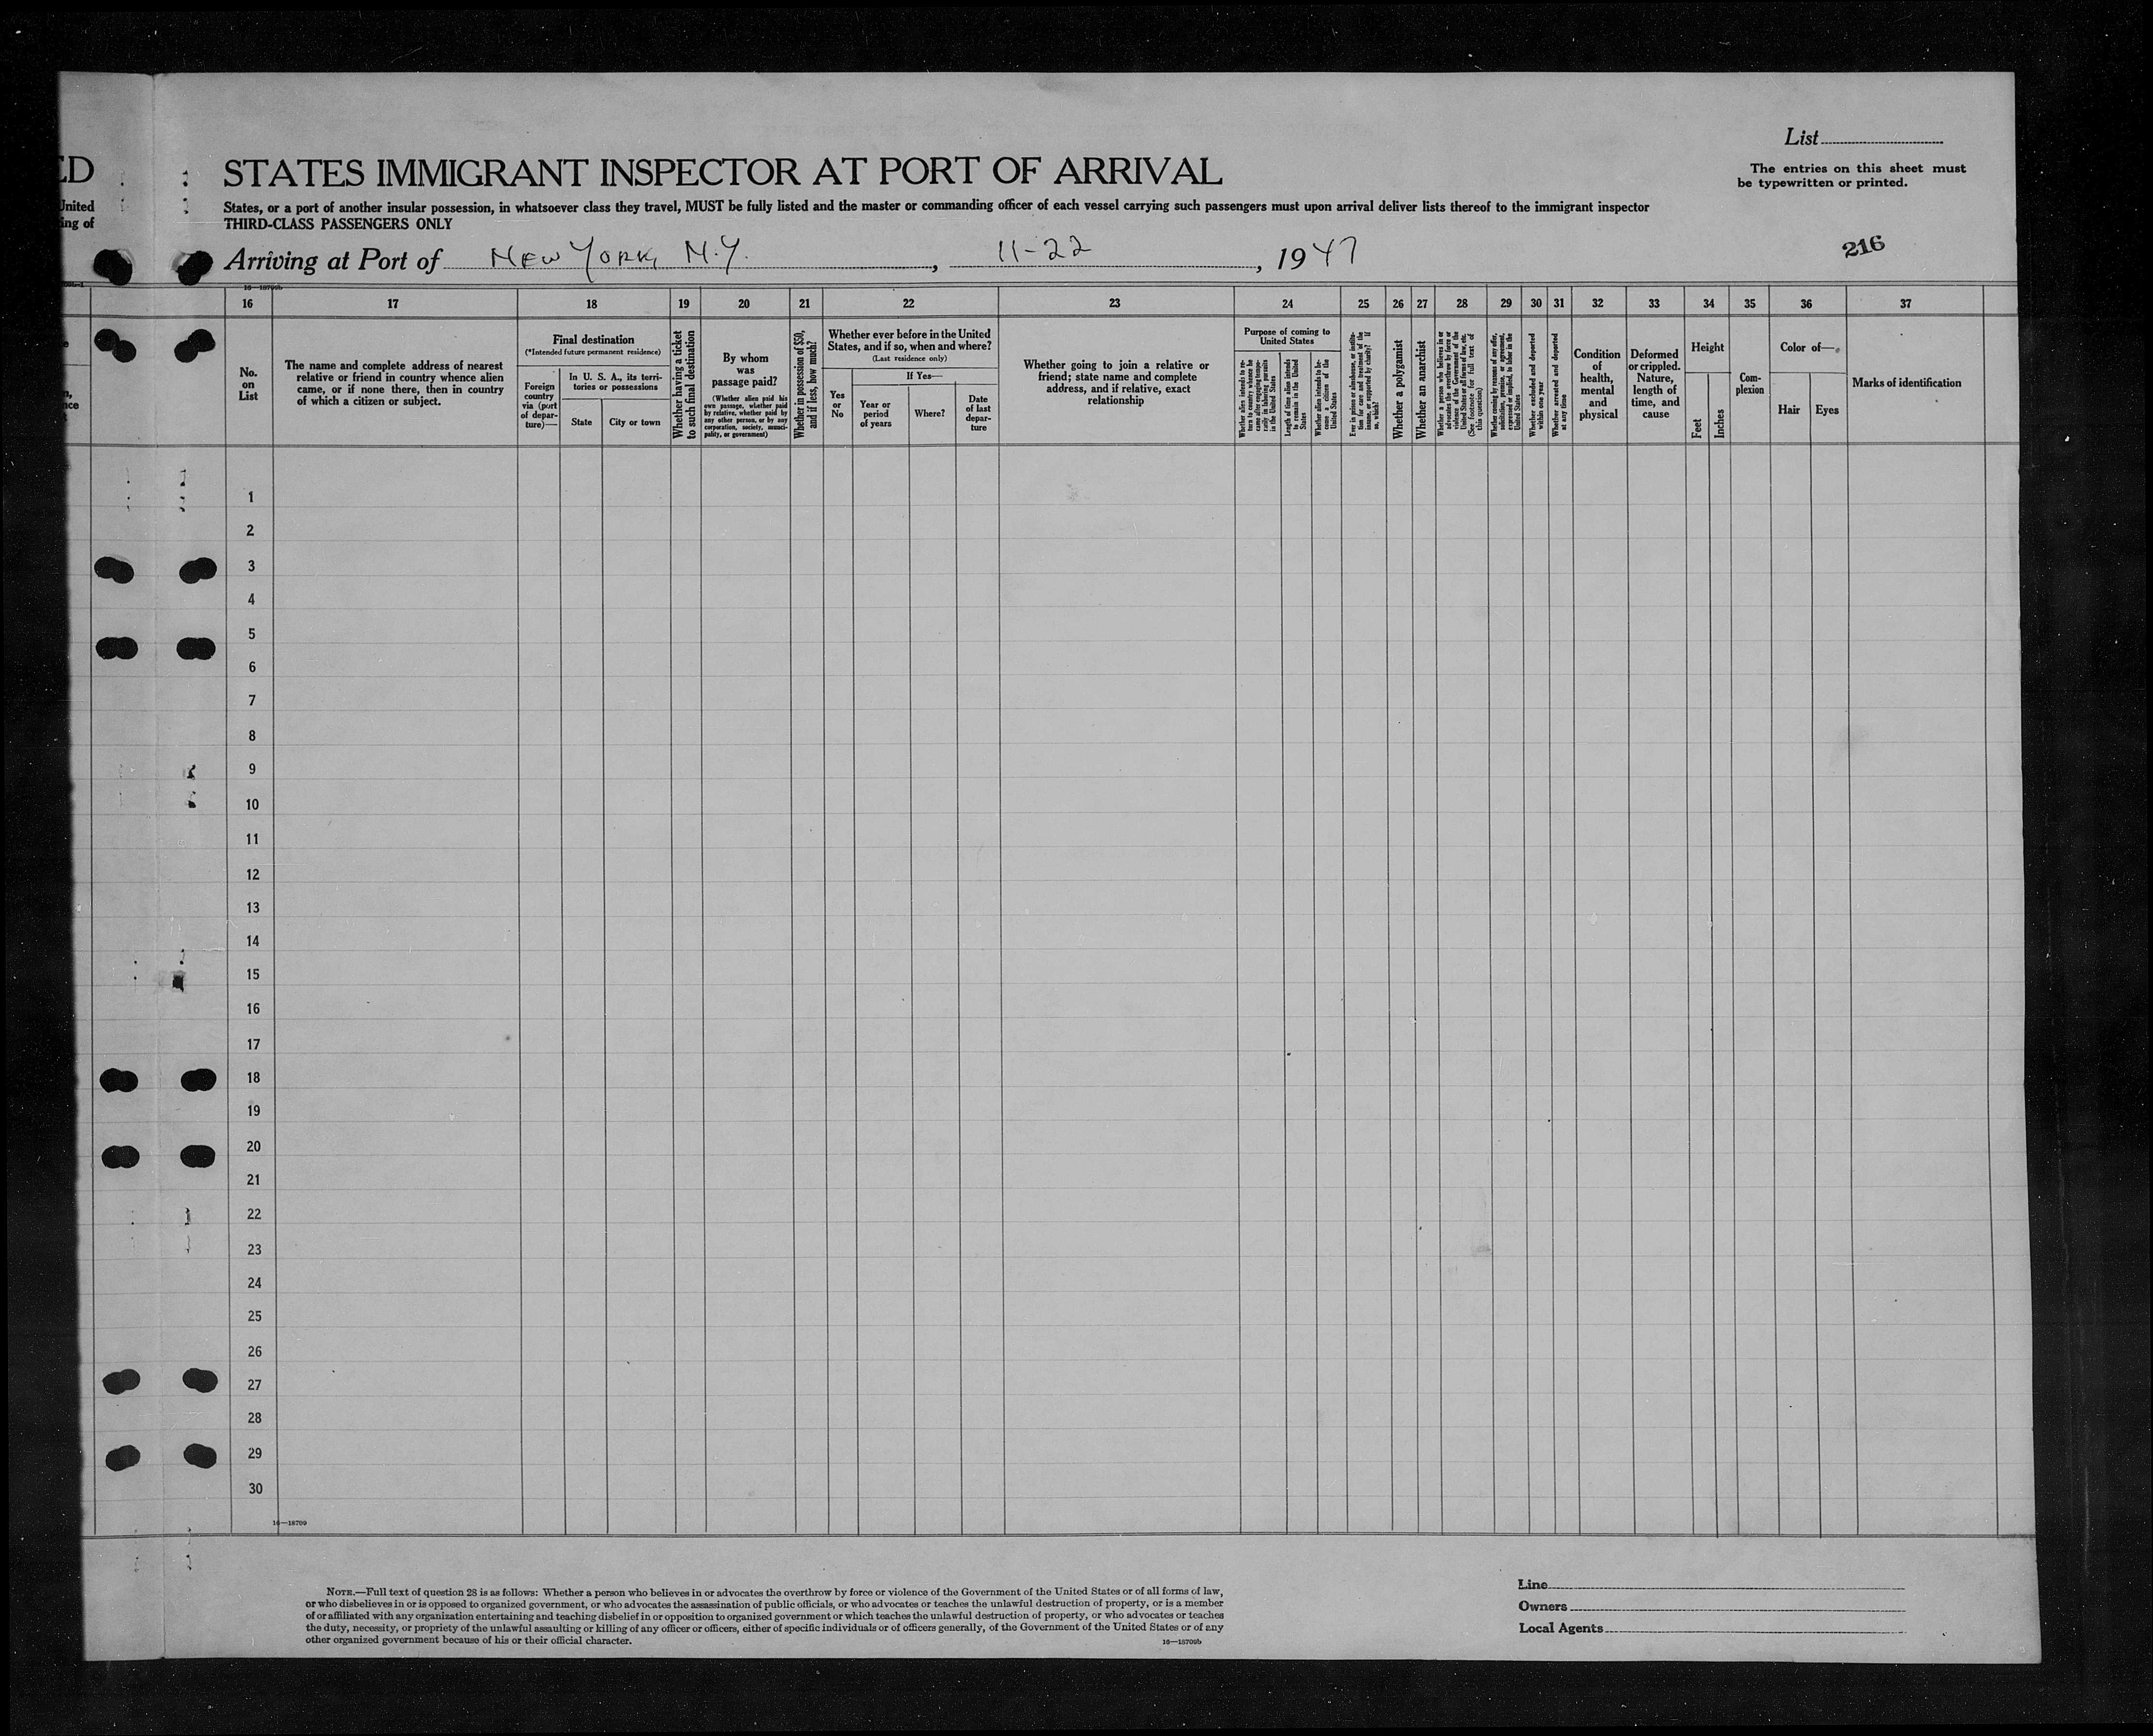 List
ED
STATES IMMIGRANT INSPECTOR AT PORT OF ARRIVAL
The entries on this sheet must
be typewritten or printed.
United
States, or a port of another insular possession, in whatsoever class they travel, MUST be fully listed and the master or commanding officer of each vessel carrying such passengers must upon arrival deliver lists thereof to the immigrant inspector
ing of
THIRD-CLASS PASSENGERS ONLY
Arriving at Port of New York, N.Y. , 11-22 , 1947
216
16 17 18 19 20 21 22 23 24 25 26 27 28 29 30 31 32 33 34 35 36 37
No.
on
List
The name and complete address of nearest
relative or friend in country whence alien
came, or if none there, then in country
of which a citizen or subject.
Final destination
(*Intended future permanent residence)
Foreign
country
via (port
of depar-
ture)—
In U. S. A., its terri-
tories or possessions
State
City or town
Whether having a ticket
to such final destination
By whom
was
passage paid?
(Whether alien paid his
own passage, whether paid
by relative, whether paid by
any other person, or by any
corporation, society, munici-
pality, or government)
Whether in possession of $50,
and if less, how much?
Whether ever before in the United
States, and if so, when and where?
(Last residence only)
Yes
or
No
If Yes—
Year or
period
of years
Where?
Date
of last
depar-
ture
Whether going to join a relative or
friend; state name and complete
address, and if relative, exact
relationship
Purpose of coming to
United States
Whether alien intends to re-
turn to country whence he
came after engaging tempo-
rarily in laboring pursuits
in the United States
Length of time alien intends
to remain in the United
States
Whether alien intends to be-
come a citizen of the
United States
Ever in prison or almshouse, or institu-
tion for care and treatment of the
insane, or supported by charity? If
so, which?
Whether a polygamist
Whether an anarchist
Whether a person who believes in or
advocates the overthrow by force or
violence of the Government of the
United States or all forms of law, etc.
(See footnote for full text of
this question)
Whether coming by reasons of any offer,
solicitation, promise, or agreement,
expressed or implied, to labor in the
United States
Whether excluded and deported
within one year
Whether arrested and deported
at any time
Condition
of
health,
mental
and
physical
Deformed
or crippled.
Nature,
length of
time, and
cause
Height
Feet
Inches
Com-
plexion
Color of—
Hair
Eyes
Marks of identification
1
2
3
4
5
6
7
8
9
10
11
12
13
14
15
16
17
18
19
20
21
22
23
24
25
26
27
28
29
30
16—18709
NOTE.—Full text of question 28 is as follows: Whether a person who believes in or advocates the overthrow by force or violence of the Government of the United States or of all forms of law,
or who disbelieves in or is opposed to organized government, or who advocates the assassination of public officials, or who advocates or teaches the unlawful destruction of property, or is a member
of or affiliated with any organization entertaining and teaching disbelief in or opposition to organized government or which teaches the unlawful destruction of property, or who advocates or teaches
the duty, necessity, or propriety of the unlawful assaulting or killing of any officer or officers, either of specific individuals or of officers generally, of the Government of the United States or of any
other organized government because of his or their official character.
16—18709b
Line
Owners
Local Agents